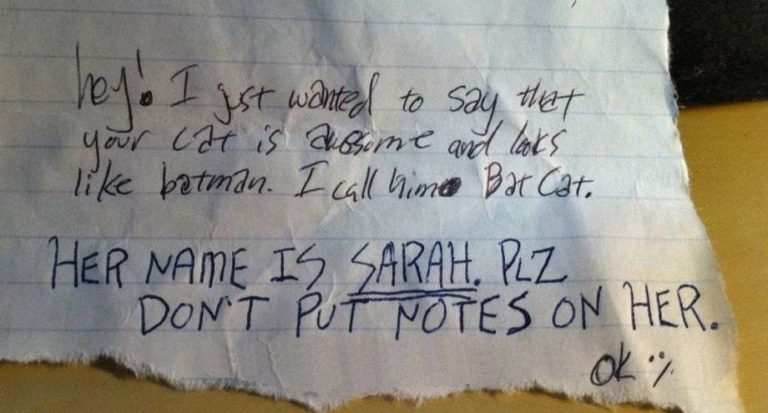 hey! I just wanted to say that
your cat is awesome and looks
like batman. I call him Bat Cat.
HER NAME IS SARAH. PLZ
DON'T PUT NOTES ON HER.
OK :/